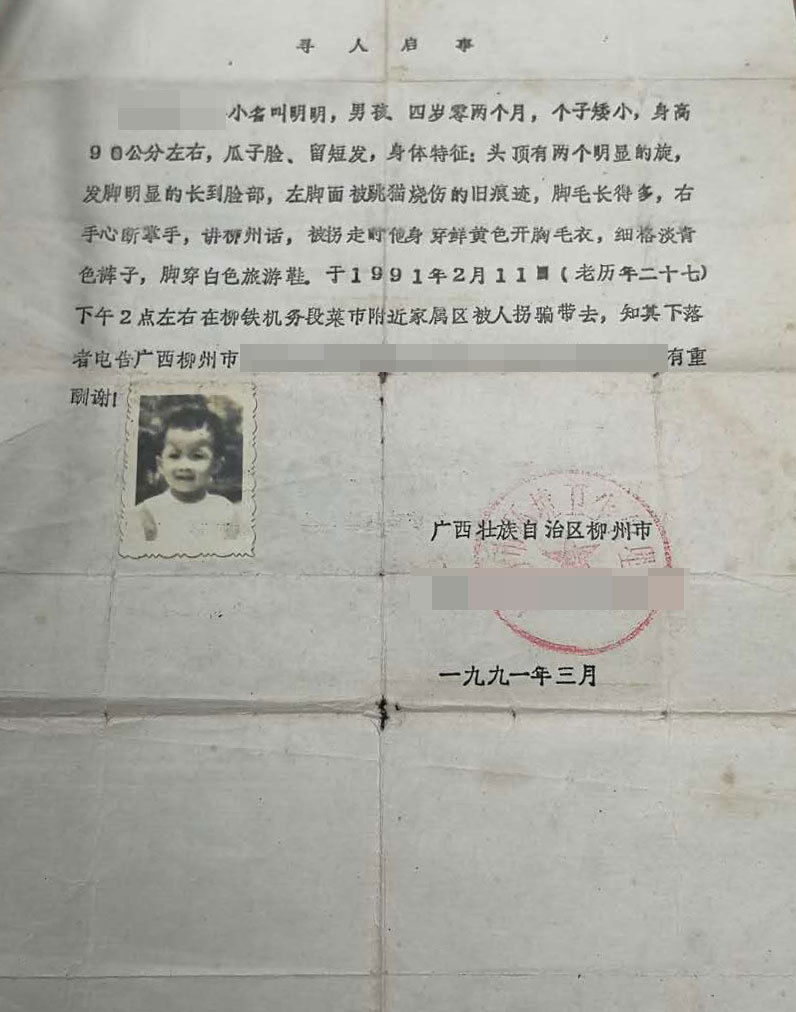 寻人启事
小名叫明明，男孩、四岁零两个月，个子矮小，身高
90公分左右，瓜子脸、留短发，身体特征：头顶有两个明显的旋，
发脚明显的长到脸部，左脚面被跳猫烧伤的旧痕迹，脚毛长得多，右
手心断掌手，讲柳州话，被拐走时他身穿鲜黄色开胸毛衣，细格淡青
色裤子，脚穿白色旅游鞋。于1991年2月11日（老历年二十七）
下午2点左右在柳铁机务段菜市附近家属区被人拐骗带去，知其下落
者电告广西柳州市 有重
酬谢！
广西壮族自治区柳州市
一九九一年三月